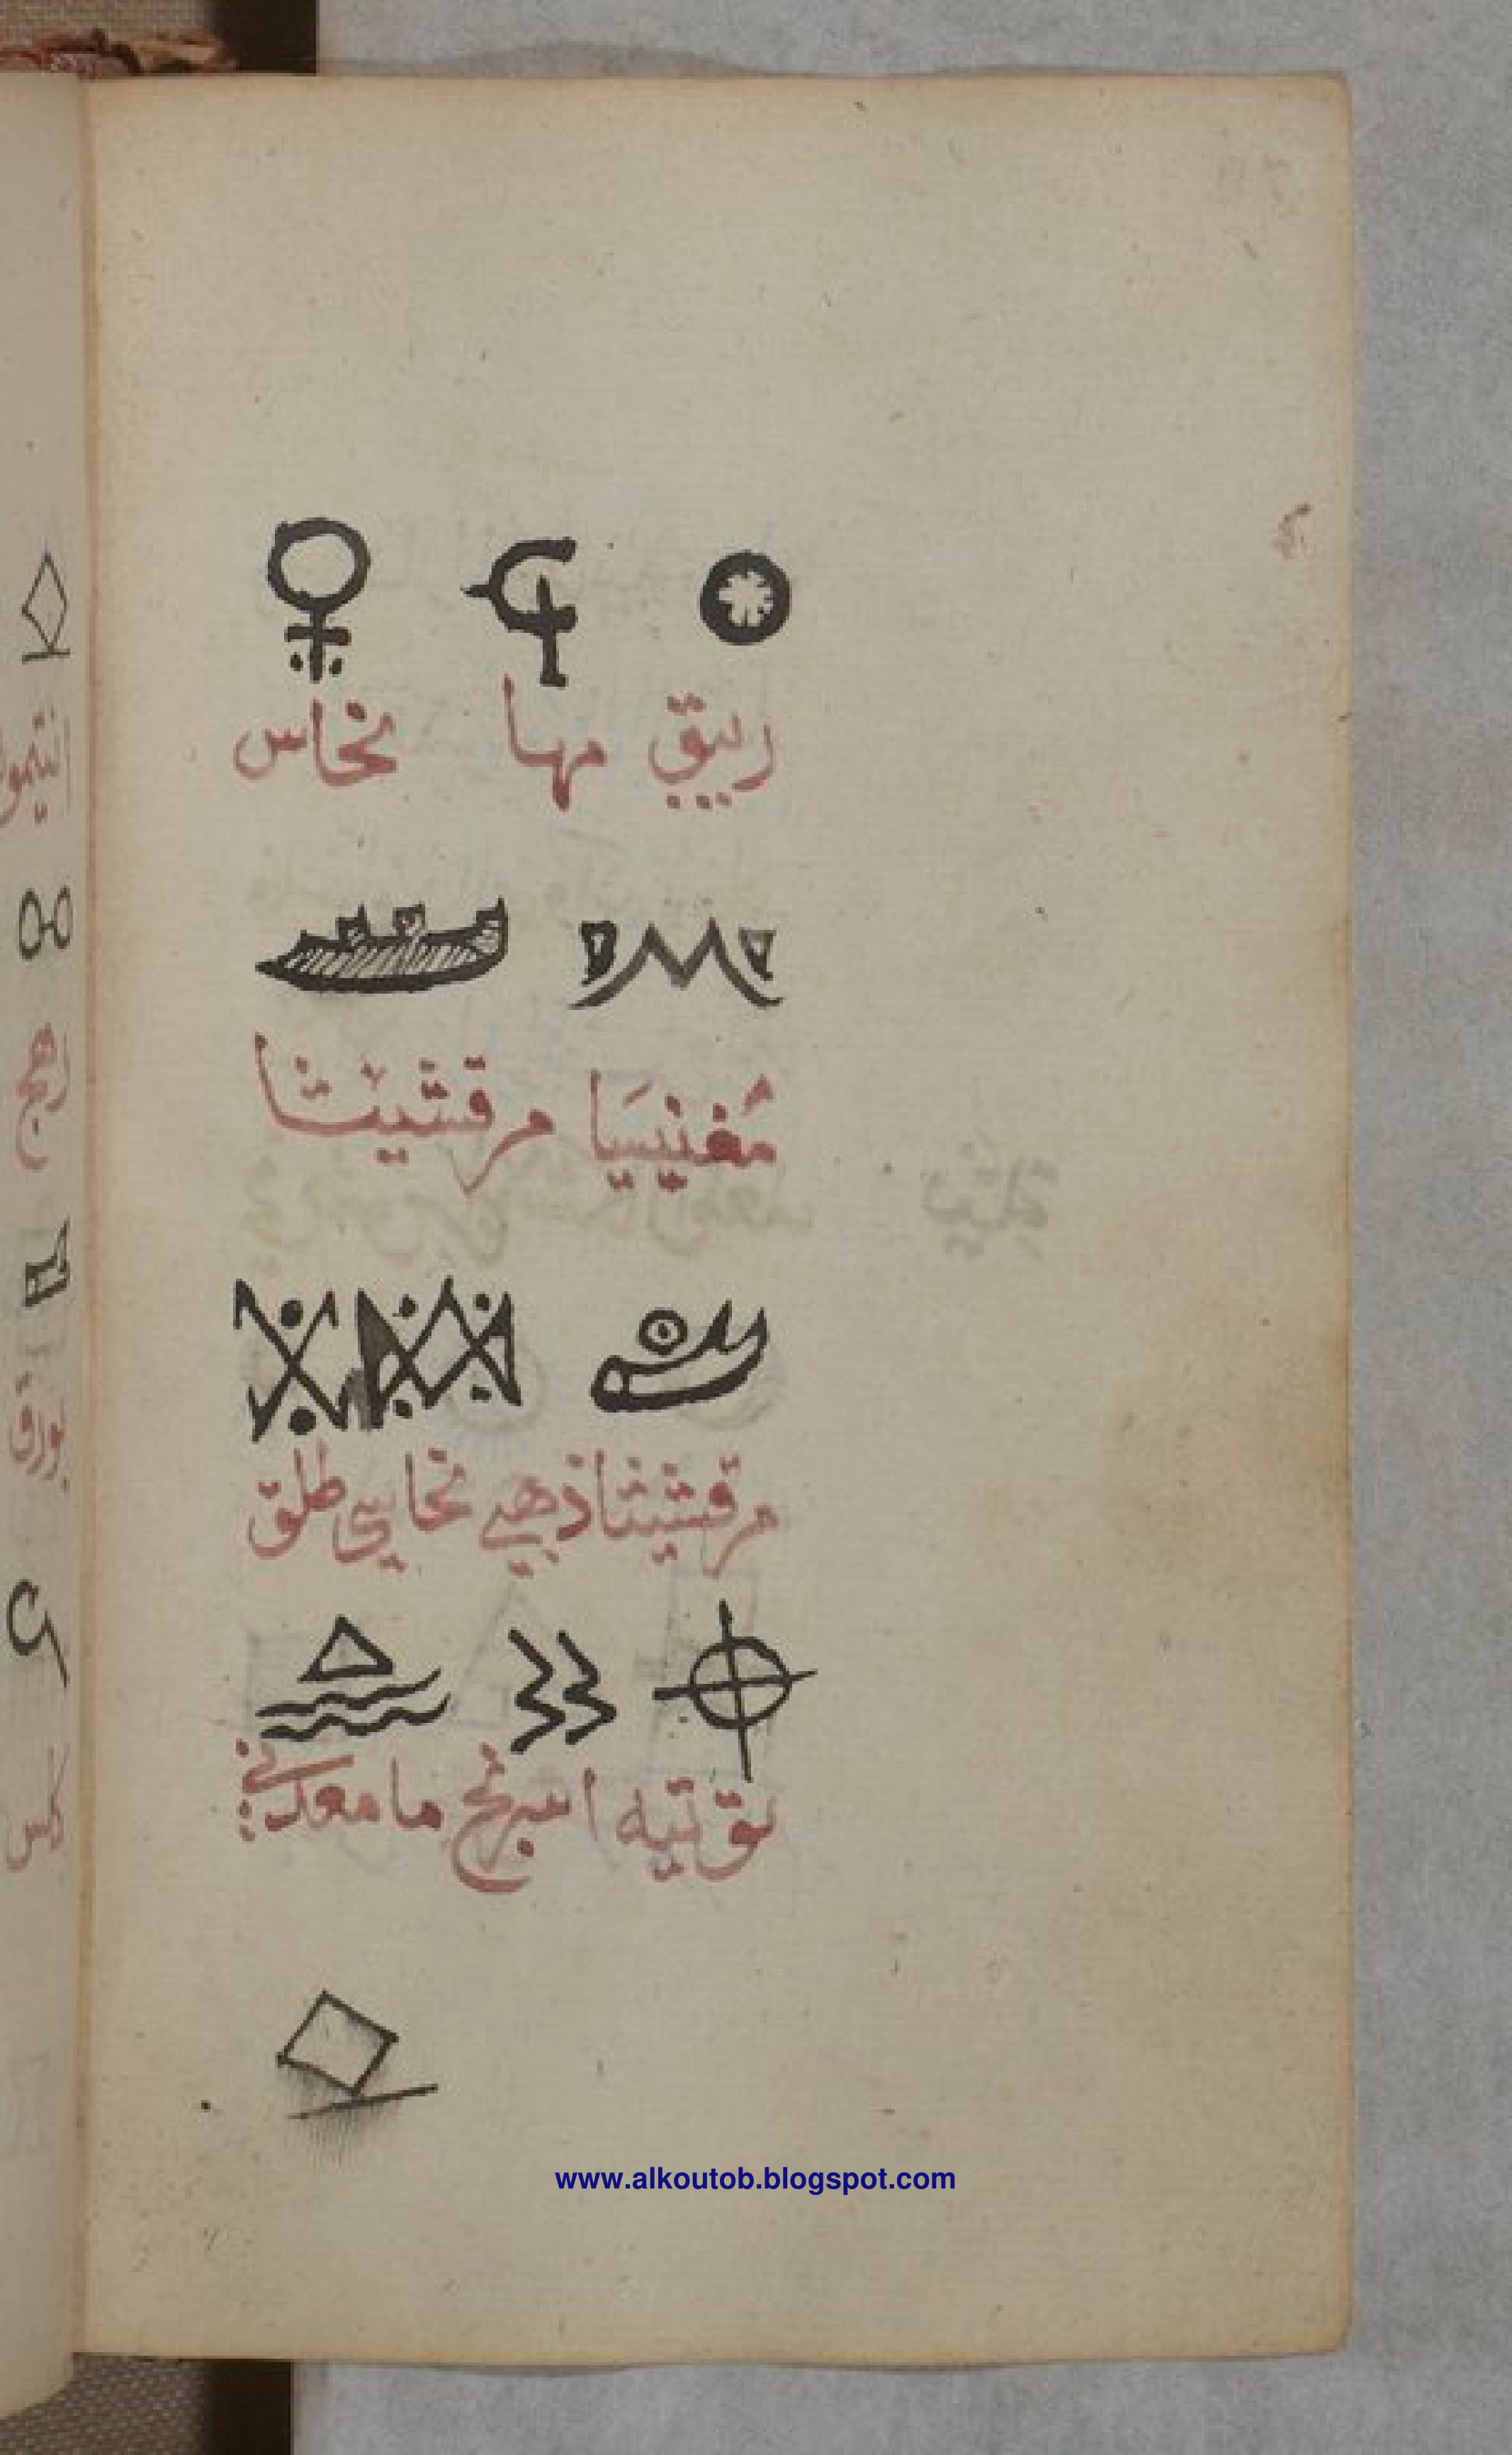 ريبق مها نحاس
مغنيسيا مرقشيثا
مرقشيثا ذهبي نحاسي طلق
توتيه اسرنج ما معدني
رهج
بورق
كلس
www.alkoutob.blogspot.com